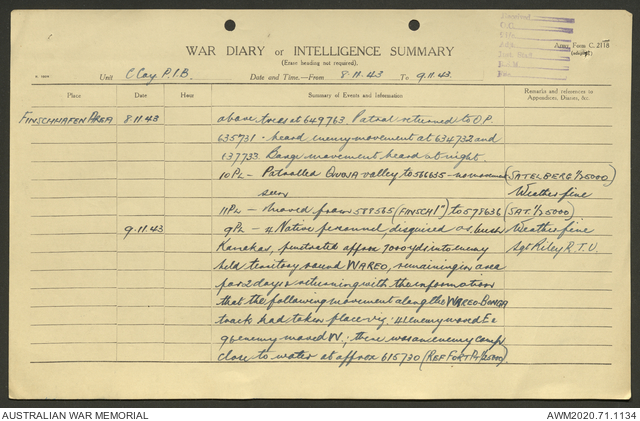 Army Form C. 2118
WAR DIARY or INTELLIGENCE SUMMARY
(Erase heading not required).
Unit C Coy P.I.B. Date and Time.—From 8.11.43 To 9.11.43.
Place Date Hour Summary of Events and Information Remarks and references to Appendices, Diaries, &c.
FINSCHHAFEN AREA 8.11.43 above trees at 649763. Patrol returned to O.P.
635731 - heard enemy movement at 634732 and
637733. Barge movement heard at night.
10 PL - Patrolled QWOJA valley to 566635 - no movement (SATELBERG 1/25000)
seen Weather fine
11 PL - moved from 588565 (FINSCH 1") to 578636 (SAT. 1/25000)
9.11.43 9 PL - 4 Native personnel disguised as bush Weather fine
Kanakas, penetrated approx 7000 yds into enemy Sgt Riley R.T.U.
held territory round WAREO, remaining in area
for 2 days & returning with the information
that the following movement along the WAREO-BONGA
track had taken place viz: 41 enemy moved E &
96 enemy moved W; there was an enemy camp
close to water at approx 615730 (REF FORT Pt 1/25000)
AUSTRALIAN WAR MEMORIAL AWM2020.71.1134